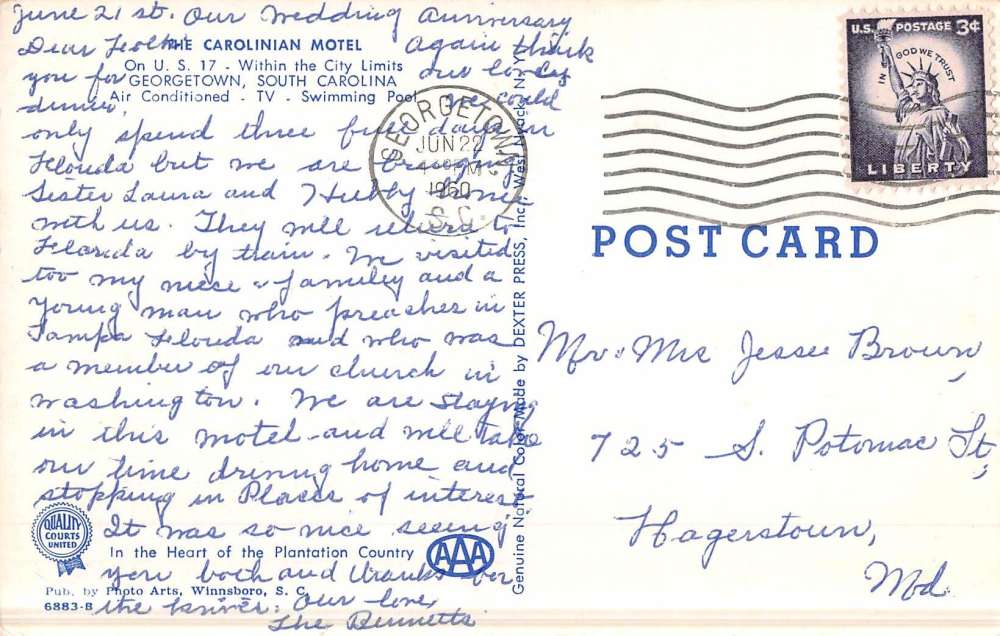 June 21 st. Our Wedding Anniversary
Dear Folks Again thank
THE CAROLINIAN MOTEL
you for our lovely
On U. S. 17 - Within the City Limits
GEORGETOWN, SOUTH CAROLINA
dinner. We could
Air Conditioned - TV - Swimming Pool
only spend three full days in
Florida but we are bringing
Sister Laura and Hubby home
with us. They will return to
Florida by train. We visited
too my niece & family and a
young man who preaches in
Tampa Florida and who was
a member of our church in
Washington. We are staying
in this motel and will take
our time driving home and
stopping in Places of interest
It was so nice seeing
In the Heart of the Plantation Country
you both and thanks for
the knives. Our love,
The Bennetts
QUALITY
COURTS
UNITED
AAA
Pub. by Photo Arts, Winnsboro, S. C.
6883-B
Genuine Natural Color Made by DEXTER PRESS, Inc., West Nyack, N. Y.
GEORGETOWN
JUN 22
PM
1960
S.C.
U.S. POSTAGE 3¢
IN GOD WE TRUST
LIBERTY
POST CARD
Mr. Mrs Jesse Brown,
725 S. Potomac St,
Hagerstown,
Md.